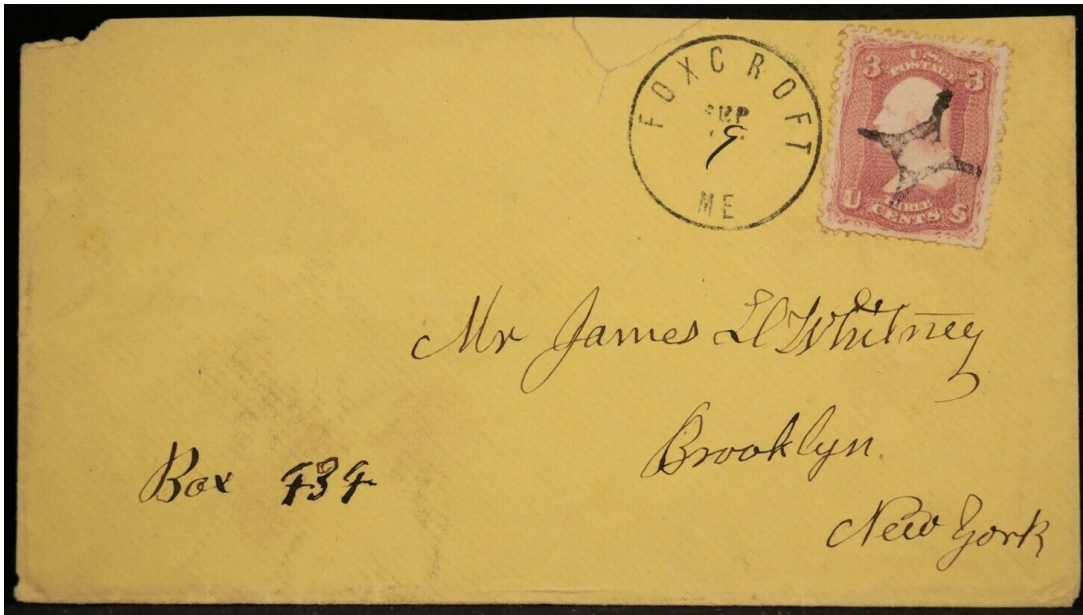 FOXCROFT
SEP
9
ME
3 U.S. 3
POSTAGE
U THREE S
CENTS
Mr James H Whitney
Brooklyn
New York
Box 434